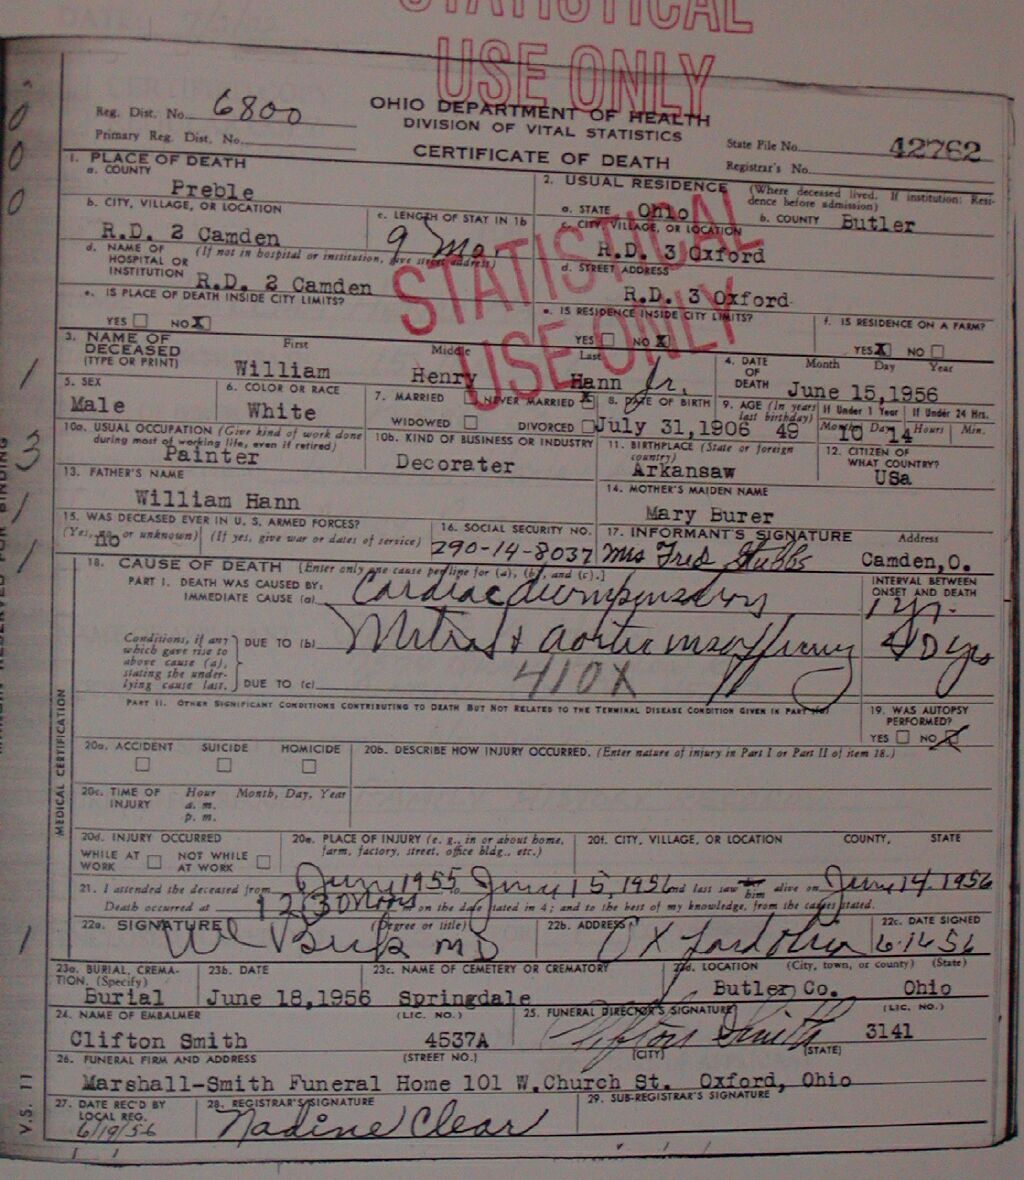 STATISTICAL
USE ONLY
Reg. Dist. No. 6800
OHIO DEPARTMENT OF HEALTH
DIVISION OF VITAL STATISTICS
CERTIFICATE OF DEATH
Primary Reg. Dist. No.
State File No. 42762
Registrar's No.
1. PLACE OF DEATH
a. COUNTY
Preble
2. USUAL RESIDENCE (Where deceased lived. If institution: Residence before admission)
a. STATE Ohio
b. COUNTY Butler
b. CITY, VILLAGE, OR LOCATION
R.D. 2 Camden
c. LENGTH OF STAY IN 1b
9 Mo.
c. CITY, VILLAGE, OR LOCATION
R.D. 3 Oxford
d. NAME OF HOSPITAL OR INSTITUTION (If not in hospital or institution, give street address)
R.D. 2 Camden
d. STREET ADDRESS
R.D. 3 Oxford
STATISTICAL
USE ONLY
e. IS PLACE OF DEATH INSIDE CITY LIMITS?
YES NO X
e. IS RESIDENCE INSIDE CITY LIMITS?
YES NO X
f. IS RESIDENCE ON A FARM?
YES X NO
3. NAME OF DECEASED (TYPE OR PRINT)
First Middle Last
William Henry Hann Jr.
4. DATE OF DEATH Month Day Year
June 15,1956
5. SEX
Male
6. COLOR OR RACE
White
7. MARRIED NEVER MARRIED X
WIDOWED DIVORCED
8. DATE OF BIRTH
July 31,1906
9. AGE (In years last birthday) 49
If Under 1 Year If Under 24 Hrs.
Months 10 Days 14 Hours Min.
10a. USUAL OCCUPATION (Give kind of work done during most of working life, even if retired)
Painter
10b. KIND OF BUSINESS OR INDUSTRY
Decorater
11. BIRTHPLACE (State or foreign country)
Arkansaw
12. CITIZEN OF WHAT COUNTRY?
USa
13. FATHER'S NAME
William Hann
14. MOTHER'S MAIDEN NAME
Mary Burer
15. WAS DECEASED EVER IN U. S. ARMED FORCES?
(Yes, no, or unknown) (If yes, give war or dates of service)
no
16. SOCIAL SECURITY NO.
290-14-8037
17. INFORMANT'S SIGNATURE Address
Mrs Fred Stubbs Camden,O.
18. CAUSE OF DEATH [Enter only one cause per line for (a), (b), and (c).]
INTERVAL BETWEEN ONSET AND DEATH
PART I. DEATH WAS CAUSED BY:
IMMEDIATE CAUSE (a) Cardiac 1 yr.
Conditions, if any which gave rise to above cause (a), stating the underlying cause last.
DUE TO (b) Mitral + aortic 40 yrs
DUE TO (c)
410X
PART II. OTHER SIGNIFICANT CONDITIONS CONTRIBUTING TO DEATH BUT NOT RELATED TO THE TERMINAL DISEASE CONDITION GIVEN IN PART I(a)
19. WAS AUTOPSY PERFORMED?
YES NO X
20a. ACCIDENT SUICIDE HOMICIDE
20b. DESCRIBE HOW INJURY OCCURRED. (Enter nature of injury in Part I or Part II of item 18.)
20c. TIME OF INJURY Hour Month, Day, Year
a. m.
p. m.
20d. INJURY OCCURRED
WHILE AT WORK NOT WHILE AT WORK
20e. PLACE OF INJURY (e. g., in or about home, farm, factory, street, office bldg., etc.)
20f. CITY, VILLAGE, OR LOCATION COUNTY, STATE
MEDICAL CERTIFICATION
21. I attended the deceased from June 1955 to June 15, 1956 and last saw him alive on June 14 1956
Death occurred at 12 30 on the date stated in 4; and to the best of my knowledge, from the causes stated.
22a. SIGNATURE (Degree or title)
MD
22b. ADDRESS
Oxford Ohio
22c. DATE SIGNED
6-16 56
23a. BURIAL, CREMATION. (Specify)
Burial
23b. DATE
June 18,1956
23c. NAME OF CEMETERY OR CREMATORY
Springdale
23d. LOCATION (City, town, or county) (State)
Butler Co. Ohio
24. NAME OF EMBALMER (LIC. NO.)
Clifton Smith 4537A
25. FUNERAL DIRECTOR'S SIGNATURE (LIC. NO.)
Clifton Smith 3141
26. FUNERAL FIRM AND ADDRESS (STREET NO.) (CITY) (STATE)
Marshall-Smith Funeral Home 101 W.Church St. Oxford, Ohio
27. DATE REC'D BY LOCAL REG.
6/19/56
28. REGISTRAR'S SIGNATURE
Nadine Clear
29. SUB-REGISTRAR'S SIGNATURE
V.S. 11